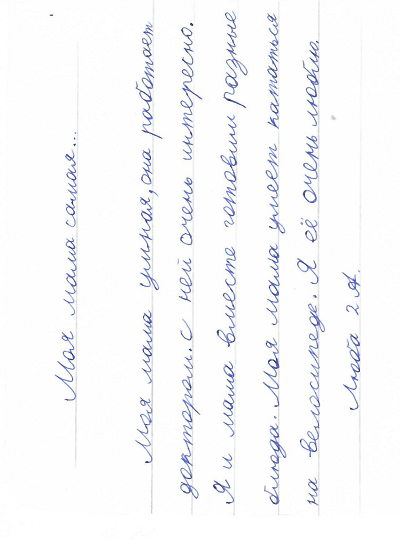 Моя мама самая...
Моя мама умная, она работает
доктором. С ней очень интересно.
Я и мама вместе готовим разные
блюда. Моя мама умеет кататься
на велосипеде. Я её очень люблю.
Люба 2 А.